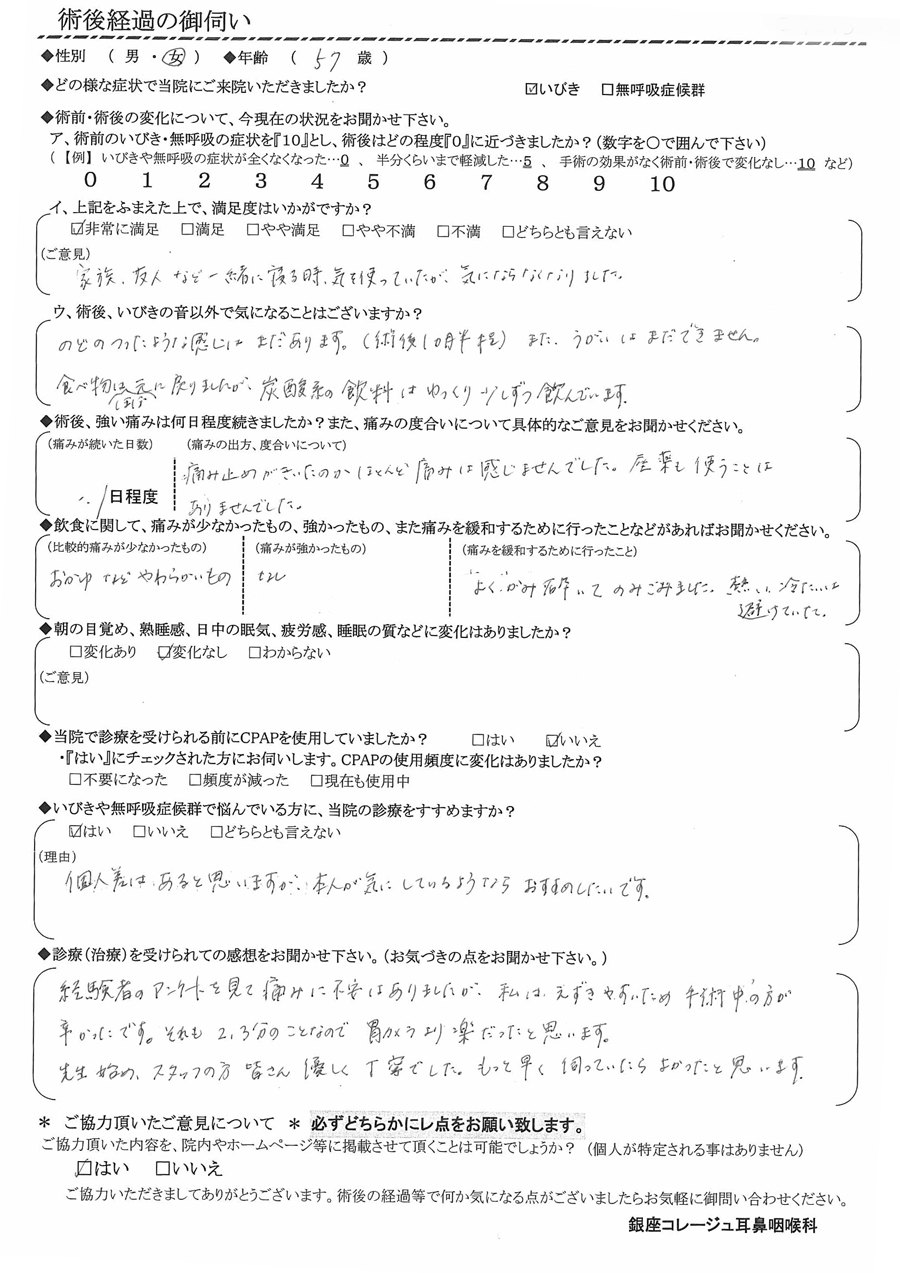 術後経過の御伺い
◆性別 ( 男 ・ 女 ) ◆年齢 ( 57 歳 )
◆どの様な症状で当院にご来院いただきましたか? ☑いびき □無呼吸症候群
◆術前・術後の変化について、今現在の状況をお聞かせ下さい。
ア、術前のいびき・無呼吸の症状を『10』とし、術後はどの程度『0』に近づきましたか?(数字を○で囲んで下さい)
(【例】 いびきや無呼吸の症状が全くなくなった…0 、 半分くらいまで軽減した…5 、 手術の効果がなく術前・術後で変化なし…10 など)
0 1 2 3 4 5 6 7 8 9 10
イ、上記をふまえた上で、満足度はいかがですか?
☑非常に満足 □満足 □やや満足 □やや不満 □不満 □どちらとも言えない
(ご意見)
家族、友人など一緒に寝る時、気を使っていたが、気にならなくなりました。
ウ、術後、いびきの音以外で気になることはございますか?
のどのつったような感じはまだあります。(術後1ヶ月半程) また、うがいはまだできません。
食べ物はほぼ元に戻りましたが、炭酸系の飲料はゆっくり少しずつ飲んでいます。
◆術後、強い痛みは何日程度続きましたか?また、痛みの度合いについて具体的なご意見をお聞かせください。
(痛みが続いた日数) (痛みの出方、度合いについて)
痛み止めがきいたのかほとんど痛みは感じませんでした。座薬も使うことは
1日程度 ありませんでした。
◆飲食に関して、痛みが少なかったもの、強かったもの、また痛みを緩和するために行ったことなどがあればお聞かせください。
(比較的痛みが少なかったもの) (痛みが強かったもの) (痛みを緩和するために行ったこと)
おかゆなどやわらかいもの なし よくかみ砕いてのみこみました。熱い、冷たいは
避けていた。
◆朝の目覚め、熟睡感、日中の眠気、疲労感、睡眠の質などに変化はありましたか?
□変化あり ☑変化なし □わからない
(ご意見)
◆当院で診療を受けられる前にCPAPを使用していましたか? □はい ☑いいえ
・『はい』にチェックされた方にお伺いします。CPAPの使用頻度に変化はありましたか?
□不要になった □頻度が減った □現在も使用中
◆いびきや無呼吸症候群で悩んでいる方に、当院の診療をすすめますか?
☑はい □いいえ □どちらとも言えない
(理由)
個人差はあると思いますが、本人が気にしているようならおすすめしたいです。
◆診療(治療)を受けられての感想をお聞かせ下さい。(お気づきの点をお聞かせ下さい。)
経験者のアンケートを見て痛みに不安はありましたが、私は、えずきやすいため手術中の方が
辛かったです。それも2,3分のことなので胃カメラより楽だったと思います。
先生始め、スタッフの方皆さん優しく丁寧でした。もっと早く伺っていたらよかったと思います。
＊ ご協力頂いたご意見について ＊ 必ずどちらかにレ点をお願い致します。
ご協力頂いた内容を、院内やホームページ等に掲載させて頂くことは可能でしょうか? (個人が特定される事はありません)
☑はい □いいえ
ご協力いただきましてありがとうございます。術後の経過等で何か気になる点がございましたらお気軽に御問い合わせください。
銀座コレージュ耳鼻咽喉科